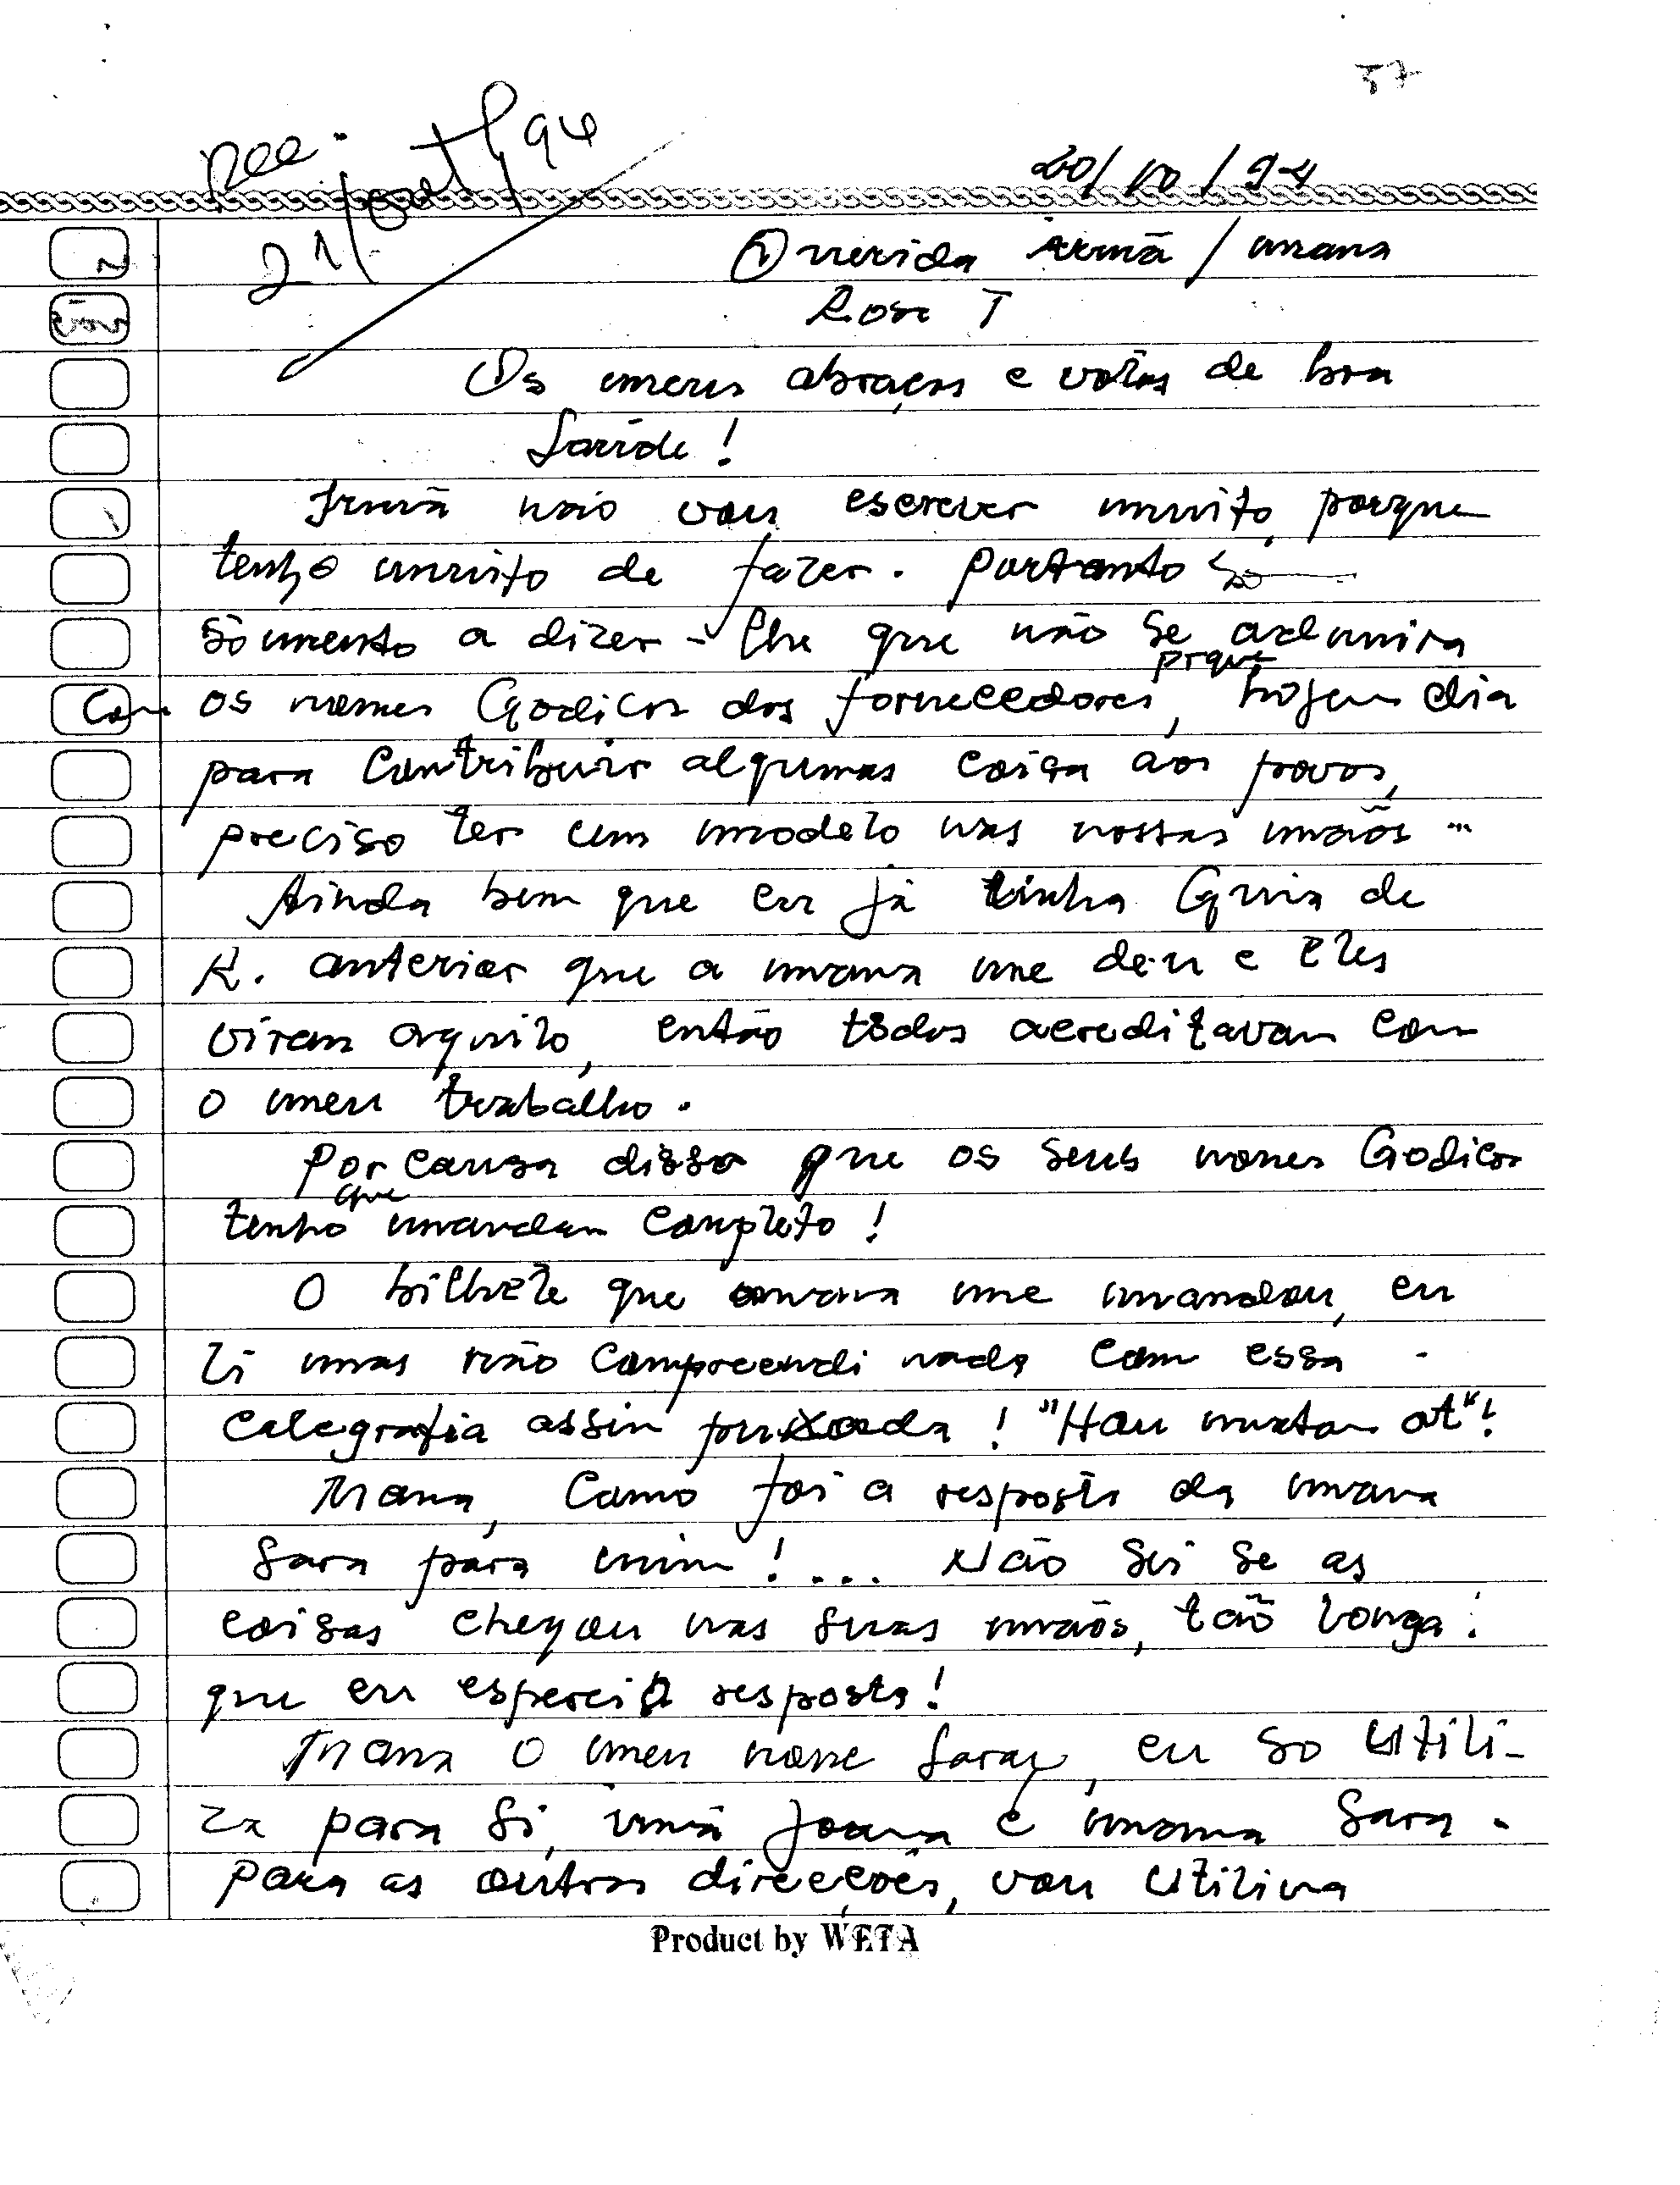 57
Rec.
21/Oct/94
20/10/94
Querida irmã / mana
Rosa T
Os meus abraços e votos de boa
Saúde!
Irmã não vou escrever muito, porque
tenho muito de fazer. Portanto só
sòmento a dizer-lhe que não se admira
Com os nomes Godicos dos fornecedores, prque hojem dia
para Contribuir algumas coisa aos povos,
preciso ter um modelo nas nossas mãos ...
Ainda bem que eu já tinha Guia de
R. anterior que a mana me deu e eles
viram aquilo, então todos acreditavam com
o meu trabalho.
Por causa disso que os seus nomes Godicos
tenho que mandam Completo!
O bilhete que mana me mandou, eu
li mas não compreendi nada com essa
calegrafia assin puxada! "Hau matan at"!
Mana, Como foi a resposta da mana
Sara para mim!... Não sei se as
coisas chegou nas suas mãos, tão longa
que eu esperei a resposta!
Mana o meu nome Saray, eu so utili-
za para Si, irmã Joana e mana Sara.
para as outras direcções, vou utiliza
Product by WETA